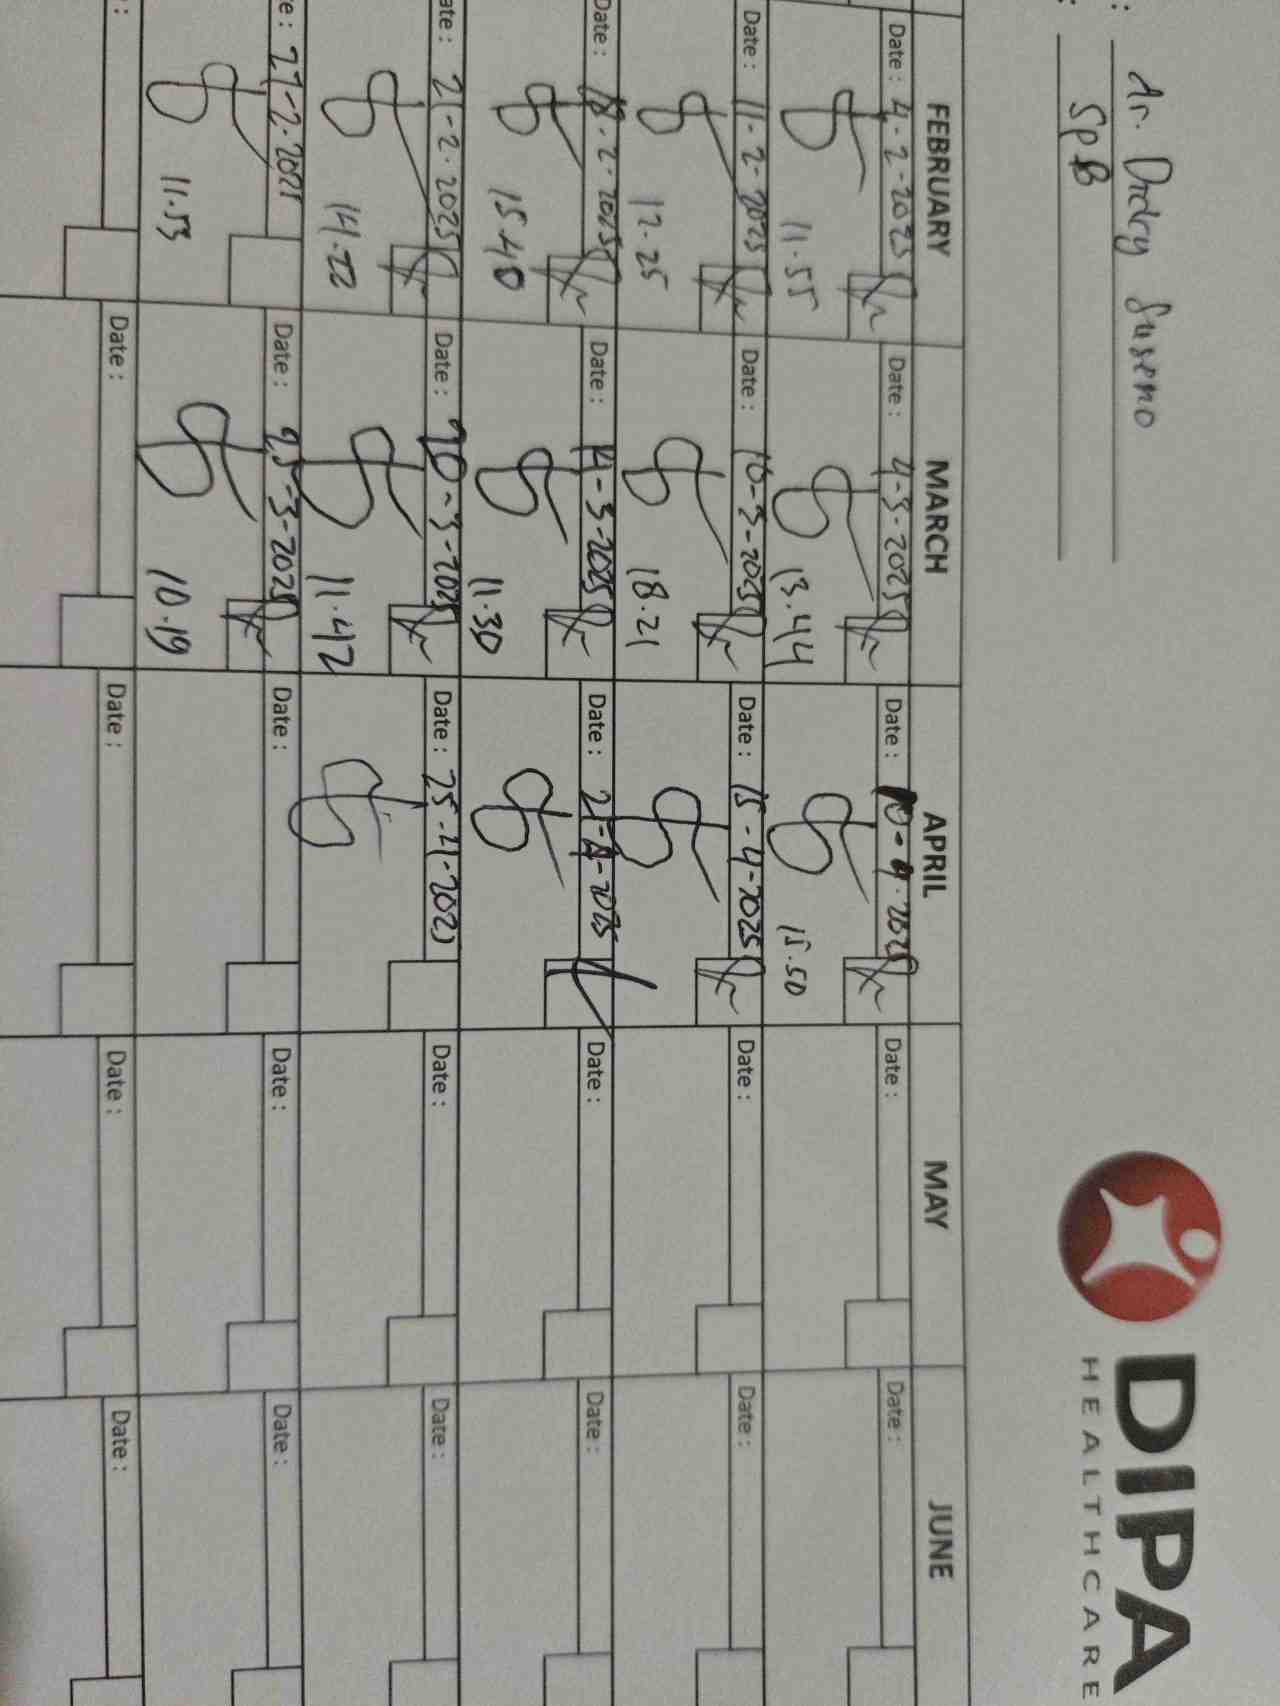 : dr. Dedey Suseno
: SpB
DIPA
HEALTHCARE
FEBRUARY MARCH APRIL MAY JUNE
Date : 4-2-2025 Date : 4-3-2025 Date : 10-4-2025 Date : Date :
11.55 13.44 15.50
Date : 11-2-2025 Date : 10-3-2025 Date : 15-4-2025 Date : Date :
12.25 18.21
Date : 18-2-2025 Date : 14-3-2025 Date : 21-4-2025 Date : Date :
15.40 11.30
ate : 21-2-2025 Date : 20-3-2025 Date : 25-4-2025 Date : Date :
14.22 11.42
e : 27-2-2025 Date : 25-3-2025 Date : Date : Date :
11.53 10.19
: Date : Date : Date : Date :